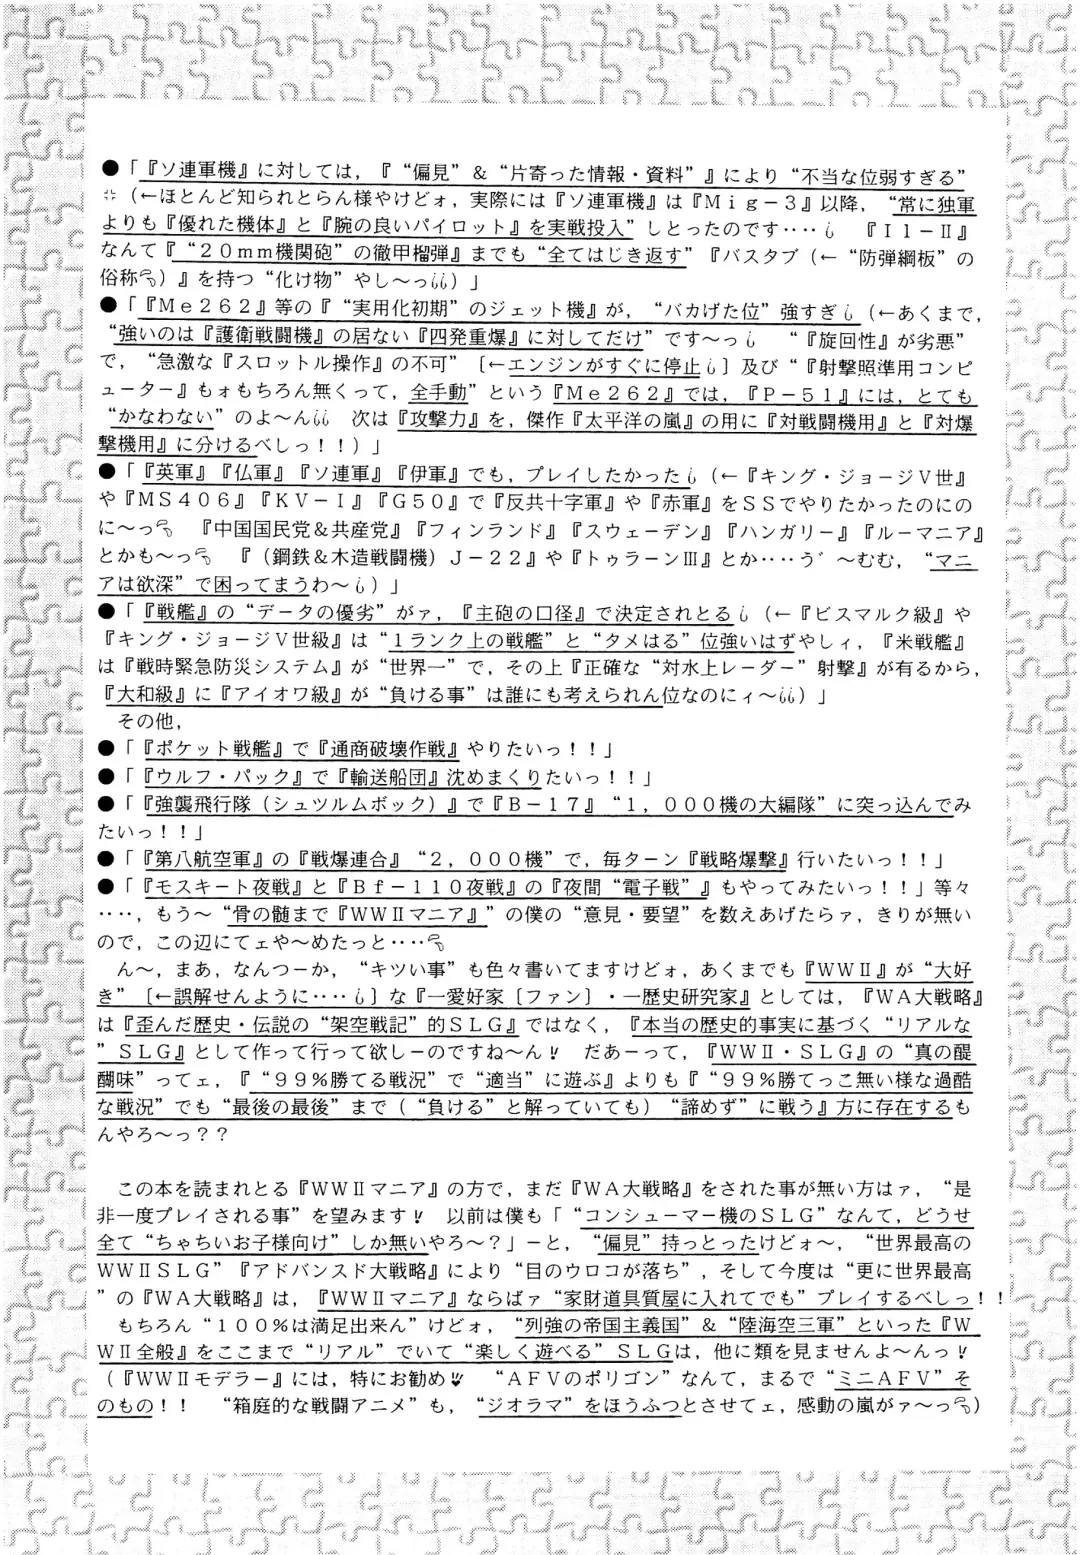 ●「『ソ連軍機』に対しては，『“偏見”＆“片寄った情報・資料”』により“不当な位弱すぎる”
（←ほとんど知られとらん様やけどォ，実際には『ソ連軍機』は『Ｍｉｇ－３』以降，“常に独軍
よりも『優れた機体』と『腕の良いパイロット』を実戦投入”しとったのです‥‥ 『Ｉｌ－Ⅱ』
なんて『“２０ｍｍ機関砲”の徹甲榴弾』までも“全てはじき返す”『バスタブ（←“防弾鋼板”の
俗称）』を持つ“化け物”やし～っ）」
●「『Ｍｅ２６２』等の『“実用化初期”のジェット機』が，“バカげた位”強すぎ（←あくまで，
“強いのは『護衛戦闘機』の居ない『四発重爆』に対してだけ”です～っ “『旋回性』が劣悪”
で，“急激な『スロットル操作』の不可”〔←エンジンがすぐに停止〕及び“『射撃照準用コンピ
ューター』もォもちろん無くって，全手動”という『Ｍｅ２６２』では，『Ｐ－５１』には，とても
“かなわない”のよ～ん 次は『攻撃力』を，傑作『太平洋の嵐』の用に『対戦闘機用』と『対爆
撃機用』に分けるべしっ！！）」
●「『英軍』『仏軍』『ソ連軍』『伊軍』でも，プレイしたかった（←『キング・ジョージＶ世』
や『ＭＳ４０６』『ＫＶ－Ⅰ』『Ｇ５０』で『反共十字軍』や『赤軍』をＳＳでやりたかったのにの
に～っ 『中国国民党＆共産党』『フィンランド』『スウェーデン』『ハンガリー』『ルーマニア』
とかも～っ 『（鋼鉄＆木造戦闘機）Ｊ－２２』や『トゥラーンⅢ』とか‥‥う゛～むむ，“マニ
アは欲深”で困ってまうわ～）」
●「『戦艦』の“データの優劣”がァ，『主砲の口径』で決定されとる（←『ビスマルク級』や
『キング・ジョージＶ世級』は“１ランク上の戦艦”と“タメはる”位強いはずやしィ，『米戦艦』
は『戦時緊急防災システム』が“世界一”で，その上『正確な“対水上レーダー”射撃』が有るから，
『大和級』に『アイオワ級』が“負ける事”は誰にも考えられん位なのにィ～）」
その他，
●「『ポケット戦艦』で『通商破壊作戦』やりたいっ！！」
●「『ウルフ・パック』で『輸送船団』沈めまくりたいっ！！」
●「『強襲飛行隊（シュツルムボック）』で『Ｂ－１７』“１，０００機の大編隊”に突っ込んでみ
たいっ！！」
●「『第八航空軍』の『戦爆連合』“２，０００機”で，毎ターン『戦略爆撃』行いたいっ！！」
●「『モスキート夜戦』と『Ｂｆ－１１０夜戦』の『夜間“電子戦”』もやってみたいっ！！」等々
‥‥，もう～“骨の髄まで『ＷＷⅡマニア』”の僕の“意見・要望”を数えあげたらァ，きりが無い
ので，この辺にてェや～めたっと‥‥
ん～，まあ，なんつーか，“キツい事”も色々書いてますけどォ，あくまでも『ＷＷⅡ』が“大好
き”〔←誤解せんように‥‥〕な『一愛好家〔ファン〕・一歴史研究家』としては，『ＷＡ大戦略』
は『歪んだ歴史・伝説の“架空戦記”的ＳＬＧ』ではなく，『本当の歴史的事実に基づく“リアルな
”ＳＬＧ』として作って行って欲しーのですね～ん!! だあーって，『ＷＷⅡ・ＳＬＧ』の“真の醍
醐味”ってェ，『“９９％勝てる戦況”で“適当”に遊ぶ』よりも『“９９％勝てっこ無い様な過酷
な戦況”でも“最後の最後”まで（“負ける”と解っていても）“諦めず”に戦う』方に存在するも
んやろ～っ？？
この本を読まれとる『ＷＷⅡマニア』の方で，まだ『ＷＡ大戦略』をされた事が無い方はァ，“是
非一度プレイされる事”を望みます!! 以前は僕も「“コンシューマー機のＳＬＧ”なんて，どうせ
全て“ちゃちいお子様向け”しか無いやろ～？」－と，“偏見”持っとったけどォ～，“世界最高の
ＷＷⅡＳＬＧ”『アドバンスド大戦略』により“目のウロコが落ち”，そして今度は“更に世界最高
”の『ＷＡ大戦略』は，『ＷＷⅡマニア』ならばァ“家財道具質屋に入れてでも”プレイするべしっ！！
もちろん“１００％は満足出来ん”けどォ，“列強の帝国主義国”＆“陸海空三軍”といった『Ｗ
ＷⅡ全般』をここまで“リアル”でいて“楽しく遊べる”ＳＬＧは，他に類を見ませんよ～んっ!!
（『ＷＷⅡモデラー』には，特にお勧め “ＡＦＶのポリゴン”なんて，まるで“ミニＡＦＶ”そ
のもの！！ “箱庭的な戦闘アニメ”も，“ジオラマ”をほうふつとさせてェ，感動の嵐がァ～っ）